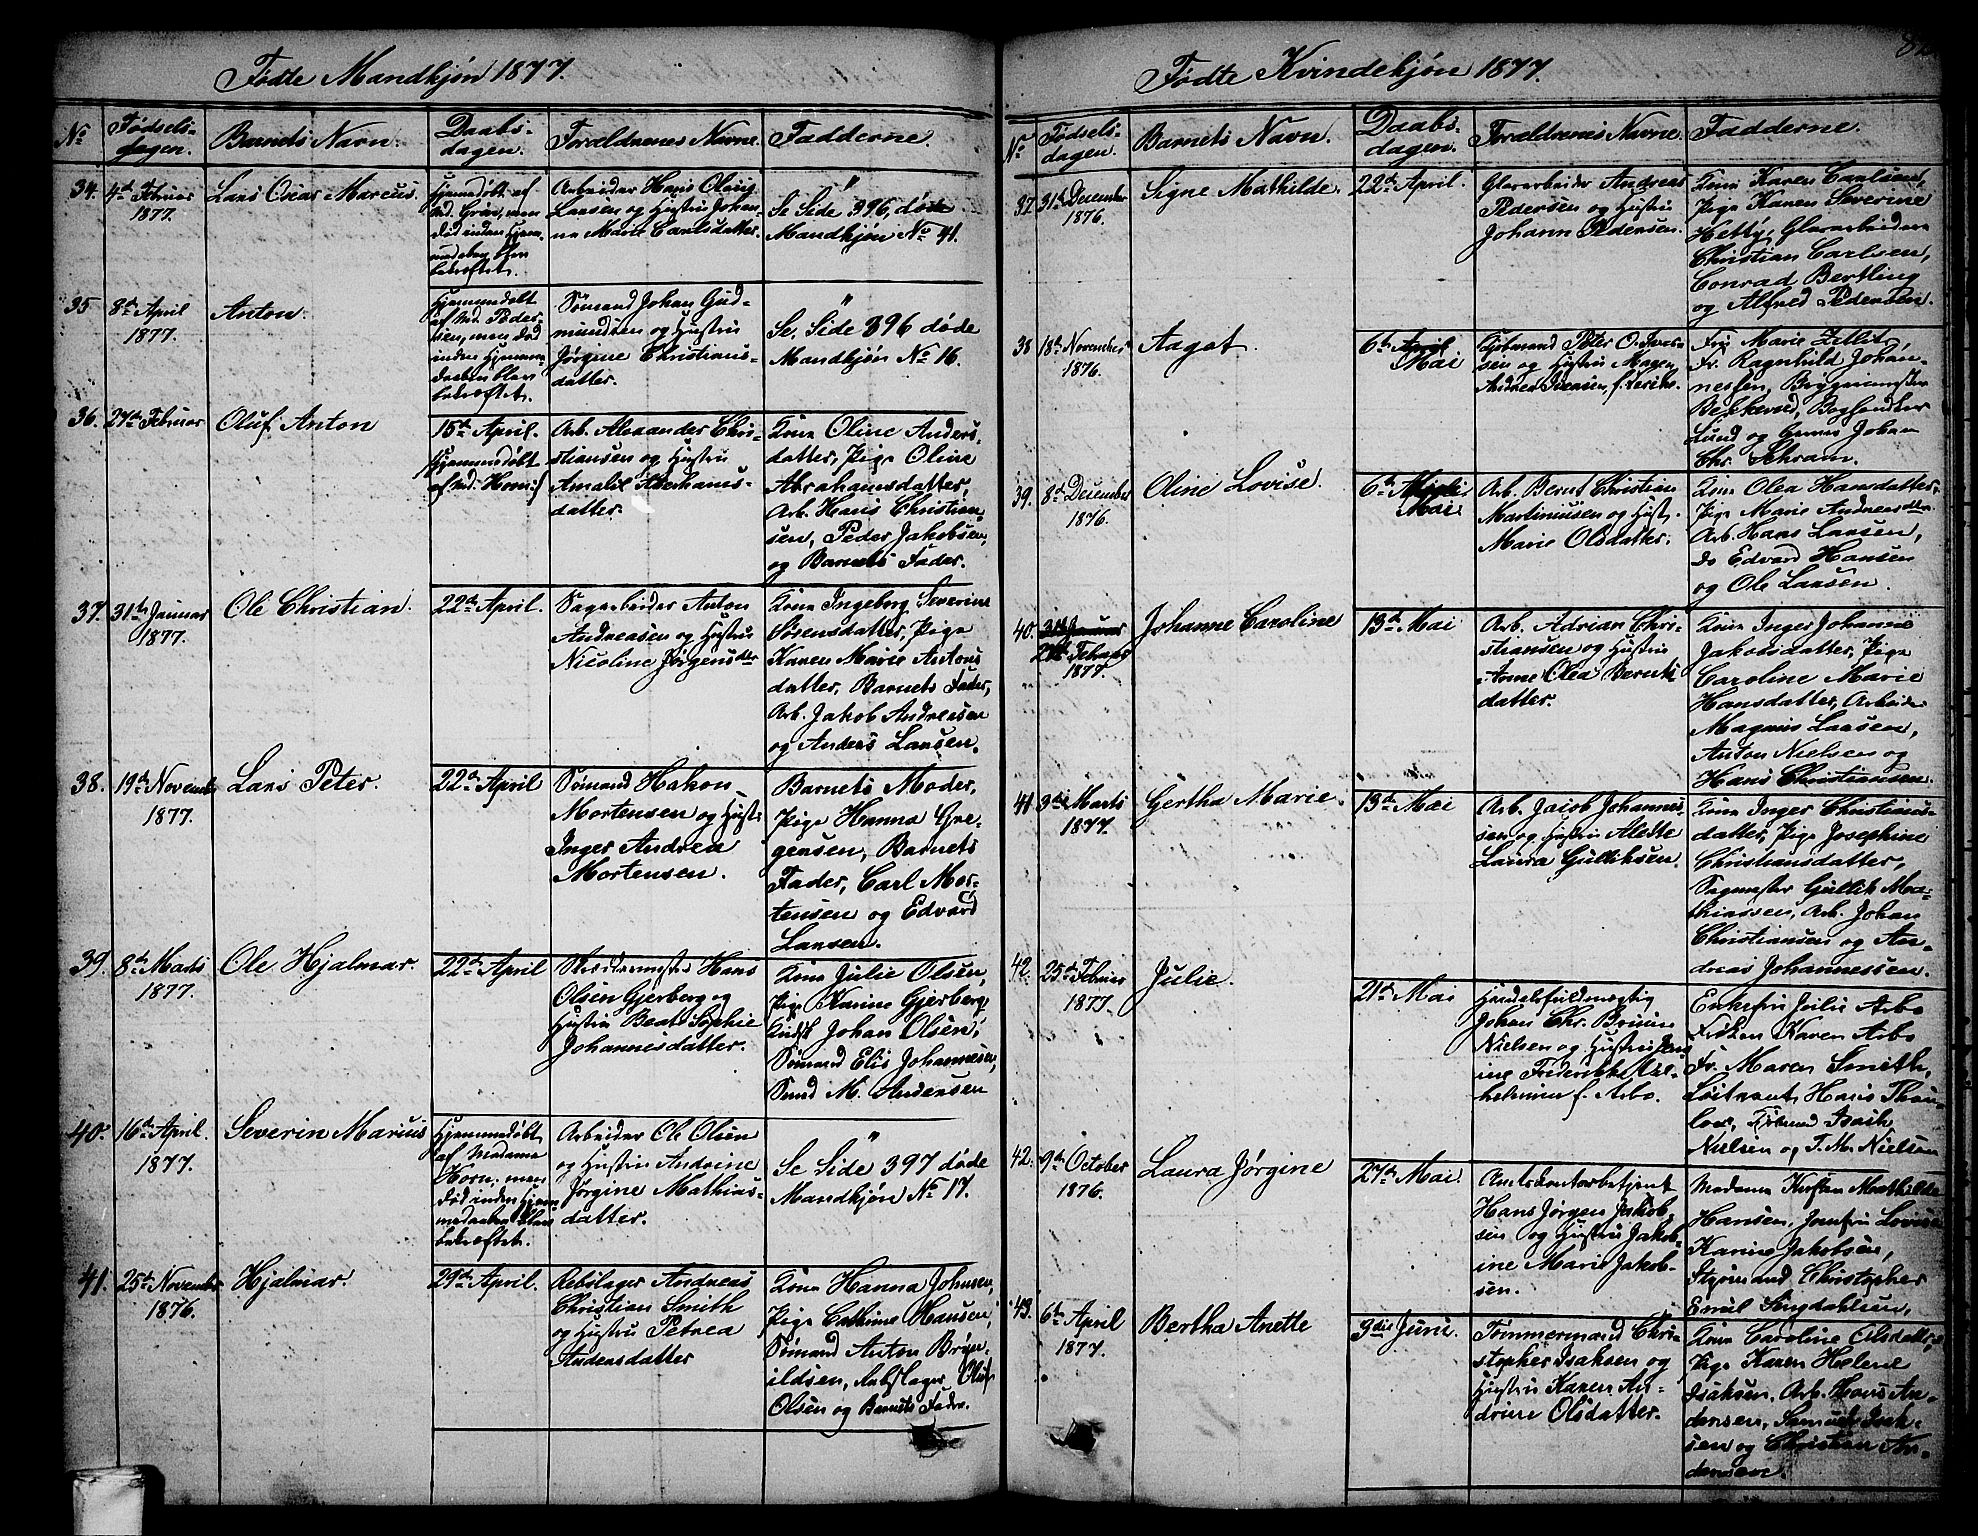 Fødte Mandkjøn 1877.
No
Fødsels-
dagen.
Barnets Navn.
Daabs-
dagen.
Forældrenes Navne.
Fadderne.
34.
4de Februar
1877.
Lars Oscar Marcus.
Hjemmedøbt af
død inden Hjem-
medaaben blev
bekræftet.
Arbeider Hans Olaus
Larsen og Hustru Johan-
ne Marie Carlsdatter.
"
Se Side 396, døde
Mandkjøn No 41.
35
8de April
1877.
Anton.
Hjemmedøbt
af Md. Peder-
sen, men død
inden Hjemme-
daaben blev
bekræftet.
Sømand Johan Gud-
mundsen og Hustru
Jørgine Christians-
datter.
"
Se, Side 396 døde
Mandkjøn No 16.
36.
27de Februar
Oluf Anton
15de April.
Hjemmedøbt
af Md. Horn.
Arb. Alexander Chri-
stiansen og Hustru
Amalie Abrahams-
datter.
Kone Oline Anders-
datter, Pige Oline
Abrahamsdatter,
Arb. Hans Christian-
sen, Peder Jakobsen,
og Barnets Fader.
37.
31te Januar
1877.
Ole Christian.
22de April.
Sagarbeider Anton
Andreasen og Hustru
Nicoline Jørgensdtr
Kone Ingeborg Severine
Sørensdatter, Pige
Karen Marie Antons
datter, Barnets Fader,
Arb. Jakob Andreasen
og Anders Larsen.
38.
19de Novemb
1877.
Lars Peter.
22de April
Sømand Hakon
Mortensen og Hust.
Inger Andrea
Mortensen.
Barnets Moder,
Pige Hanna Gre-
gersen, Barnets
Fader, Carl Mor-
tensen og Edvard
Larsen.
39.
8de Marts
1877.
Ole Hjalmar.
22de April
Hans
Olsen Gjerberg og
Hustru Beate Sophie
Johannesdatter.
Kone Julie Olsen,
Pige Karine Gjerberg
Johan Olsen,
Sømand Elis Johannesen,
M. Andersen
40.
16de April.
1877.
Severin Marius
Hjemmedøbt
af Madame
Horn, men
død inden Hjem-
medaaben blev
bekræftet.
Arbeider Ole Olsen
og Hustru Andrine
Jørgine Mathias-
datter.
"
Se Side 397 døde
Mandkjøn No 17.
41.
25de November
1876.
Hjalmar.
29de April.
Rebslager Andreas
Christian Smith
og Hustru Petrea
Andersdatter
Kone Hanna Johnsen,
Pige Cathrine Hansen,
Sømand Anton Bryn-
ildsen, Rebslager Oluf
Olsen og Barnets Fader.
Fødte Kvindekjøn 1877.
No
Fødsels-
dagen.
Barnets Navn.
Daabs-
dagen.
Forældrenes Navne.
Fadderne.
37
31te December
1876.
Signe Mathilde.
22de April.
Glasarbeider Andreas
Pedersen og Hustru
Johann Pedersen.
Kone Karen Carlsen,
Pige Karen Severine
Hetty, Glasarbeidere
Christian Carlsen,
Conrad Bertling
og Alfred Pedersen.
38
18de November
1876.
Aagot.
6te April
Mai
Kjøbmand Peter O. Iver-
sen og Hustru Maren
Andrea Iversen, f.
Fru Marie
Fr. Ragnhild Johan-
nessen,
Boghandler
Lund og Johan
Chr. Schram.
39.
8de December
1876.
Oline Lovise.
6te
Mai
Arb. Bernt Christian
Martiniusen og Hust.
Marie Olsdatter.
Kone Olea Hansdatter,
Pige Marie Andreasdtr.
Arb. Hans Larsen,
do Edvard Hansen
og Ole Larsen.
40.
31te Januar
27de Februar
1877.
Johanne Caroline
13de Mai
Arb. Adrian Chri-
stiansen og Hustru
Anne Olea Bernts-
datter.
Kone Inger Johanne
Jakobsdatter, Pige
Caroline Marie
Hansdatter, Arbeider
Magnus Larsen,
Anton Nielsen og
Hans Christiansen.
41
3die Marts
1877.
Gertha Marie.
13de Mai
Arb. Jacob Johannes-
sen og Hustru Alette
Laura Gulliksen.
Kone Inger Christians-
datter, Pige Josephine
Christiansdatter,
Sagmester Gullik Ma-
thiassen, Arb. Johan
Christiansen og An-
dreas Johannessen.
42.
25de Februar
1877.
Julie.
21de Mai
Handelsfuldmægtig
Johan Chr. Bruun
Nielsen og Hustru
ine Frederikke Wil-
helmine f. Arbo.
Enkefru Julie Arbo
Frøken Karen Arbo
Fr. Maren Smith,
Løitnant Hans Thau-
low, Isach
Nielsen og T. M. Nielsen
42.
9de October
1876.
Laura Jørgine
27de Mai.
Amtskontorbetjent
Hans Jørgen Jakob-
sen og Hustru Jakob-
ine Marie Jakob-
sen.
Madame Kirsten Mathilde
Hansen, Jomfru Lovise
Karine Jakobsen,
Styrmand Christopher
Emil Lingdahlsen,
43.
6te April
1877.
Bertha Anette
3die Juni.
Tømmermand Chri-
stopher Isaksen og
Hustru Karen An-
drine Olsdatter.
Kone Caroline Olsdatter,
Pige Karen Helene
Isaksen, Arb. Hans An-
dersen, Samuel Isak-
sen og Christian An-
dersen.